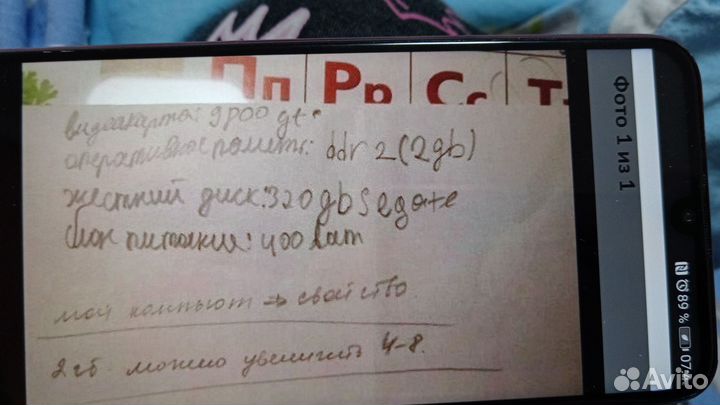 Пп Рр Сс Т
видеокарта: 9800 gt.
оперативное память: ddr 2 (2gb)
жесткий диск: 320gb segate
блок питания: 400 ват
мой компьют → свойство.
2 гб. можно увеличить 4-8.
Фото 1 из 1
89 %
07
Avito